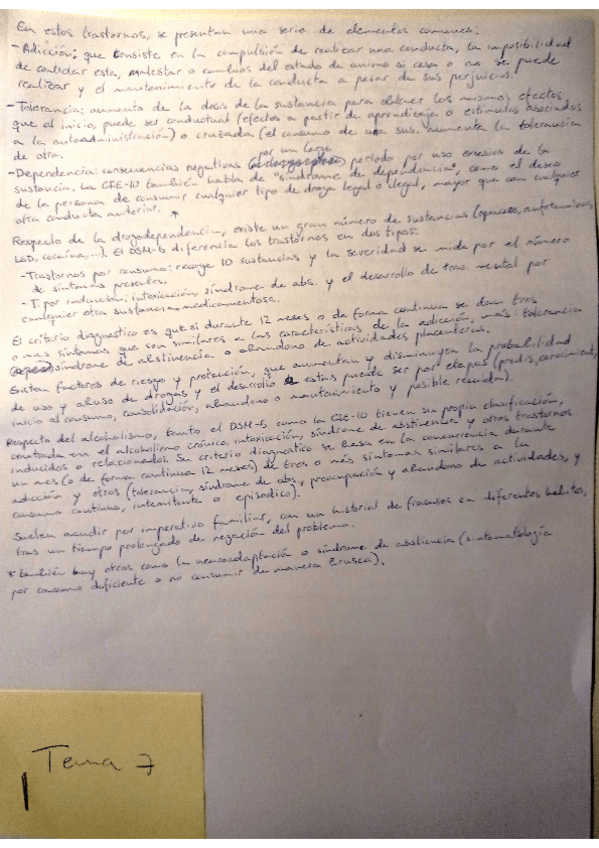 En estos trastornos, se presentan una serie de elementos comunes:
- Adicción: que consiste en la compulsión de realizar una conducta, la imposibilidad
de controlar esta, malestar o cambios del estado de animo si cesa o no se puede
realizar y el mantenimiento de la conducta a pesar de sus perjuicios.
- Tolerancia: aumento de la dosis de la sustancia para obtener los mismos efectos
que al inicio, puede ser conductual (efectos a partir de aprendizaje o estímulos asociados
a la autoadministración) o cruzada (el consumo de una sus. aumenta la tolerancia
de otra.
por un largo
- Dependencia: consecuencias negativas periodo por uso excesivo de la
sustancia. La CIE-10 también habla de "síndrome de dependencia", como el deseo
de la persona de consumir cualquier tipo de droga legal o ilegal, mayor que con cualquier
otra conducta anterior. *
Respecto de la drogodependencia, existe un gran número de sustancias (opiaceos, anfetaminas,
LSD, cocaína,...). El DSM-5 diferencia los trastornos en dos tipos:
- Trastornos por consumo: recoge 10 sustancias y la severidad se mide por el número
de síntomas presentes.
- T. por inducción: intoxicación, síndrome de abs. y el desarrollo de tras. mental por
cualquier otra sustancia o medicamentosa.
El criterio diagnostico es que si durante 12 meses o de forma continua se dan tres
o más síntomas que son similares a las características de la adicción, más: tolerancia
síndrome de abstinencia o abandono de actividades placenteras.
Existen factores de riesgo y protección, que aumentan y disminuyen la probabilidad
de uso y abuso de drogas y el desarrollo de estas puede ser por etapas (predis, conocimiento,
inicio al consumo, consolidación, abandono o mantenimiento y posible recaída).
Respecto del alcoholismo, tanto el DSM-5 como la CIE-10 tienen su propia clasificación,
centrada en el alcoholismo crónico, intoxicación, síndrome de abstinencia y otros trastornos
inducidos o relacionados. Su criterio diagnostico se basa en la concurrencia durante
un mes (o de forma continua 12 meses) de tres o más síntomas similares a la
adicción y otros (tolerancia, síndrome de abs, preocupación y abandono de actividades, y
consumo continuo, intermitente o episodico).
Suelen acudir por imperativo familiar, con un historial de fracasos en diferentes ámbitos,
tras un tiempo prolongado de negación del problema.
* también hay otros como la neuroadaptación o síndrome de abstinencia (sintomatología
por consumo deficiente o no consumir de manera brusca).
Tema 7